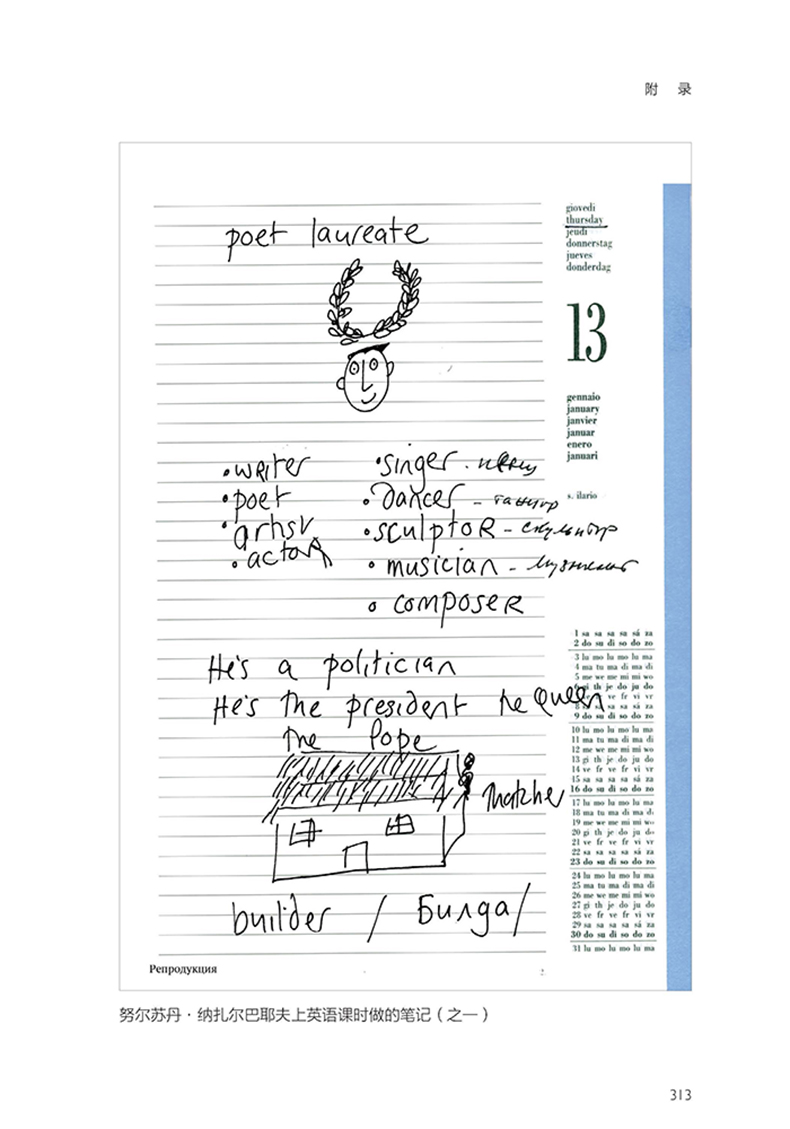 附 录
poet laureate
giovedi
thursday
jeudi
donnerstag
jueves
donderdag
13
gennaio
january
janvier
januar
enero
januari
s. ilario
• writer
• poet
• artist
• actor
• singer - певец
• dancer - танцор
• sculptor - скульптор
• musician - музыкант
• composer
He's a politician
He's the president he Queen
the Pope
Thatcher
builder / Билда/
1 sa sa sa sa sá za
2 do su di so do zo
3 lu mo lu mo lu ma
4 ma tu ma di ma di
5 me we me mi mi wo
6 gi th je do ju do
9 do su di so do zo
10 lu mo lu mo lu ma
11 ma tu ma di ma di
12 me we me mi mi wo
13 gi th je do ju do
14 ve fr ve fr vi vr
15 sa sa sa sa sá za
16 do su di so do zo
17 lu mo lu mo lu ma
18 ma tu ma di ma di
19 me we me mi mi wo
20 gi th je do ju do
21 ve fr ve fr vi vr
22 sa sa sa sa sá za
23 do su di so do zo
24 lu mo lu mo lu ma
25 ma tu ma di ma di
26 me we me mi mi wo
27 gi th je do ju do
28 ve fr ve fr vi vr
29 sa sa sa sa sá za
30 do su di so do zo
31 lu mo lu mo lu ma
Репродукция
努尔苏丹·纳扎尔巴耶夫上英语课时做的笔记（之一）
313